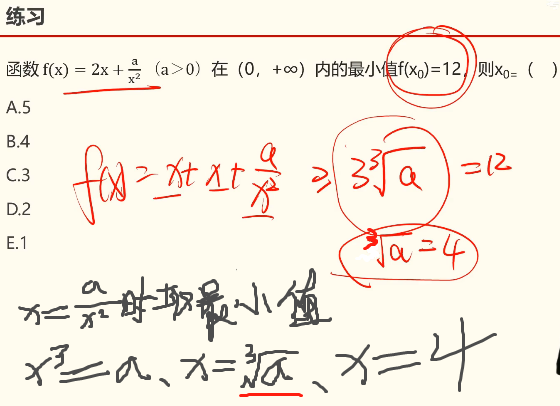 练习
函数 f(x) = 2x + a/x² （a＞0）在（0，+∞）内的最小值f(x₀)=12，则x₀=（ ）
A.5
B.4
C.3
D.2
E.1
f(x) = x + x + a/x² ≥ 3∛a = 12
∛a = 4
x = a/x² 时取最小值
x³ = a、x = ∛a、x = 4